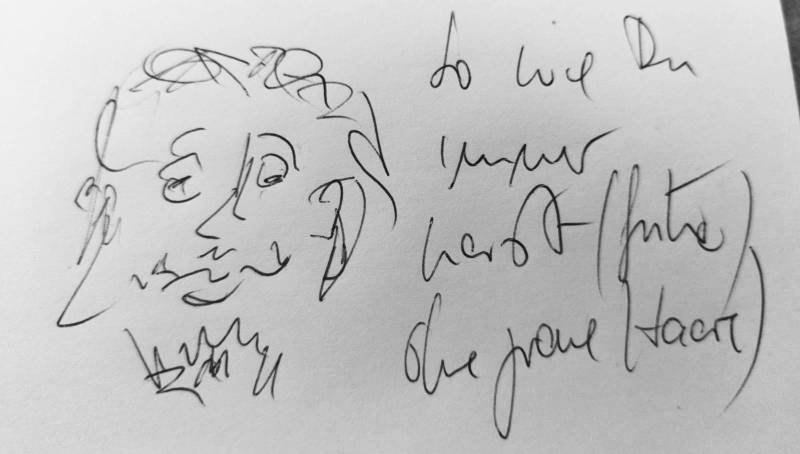 so wie Du
immer
warst (früher)
ohne graue (Haare)